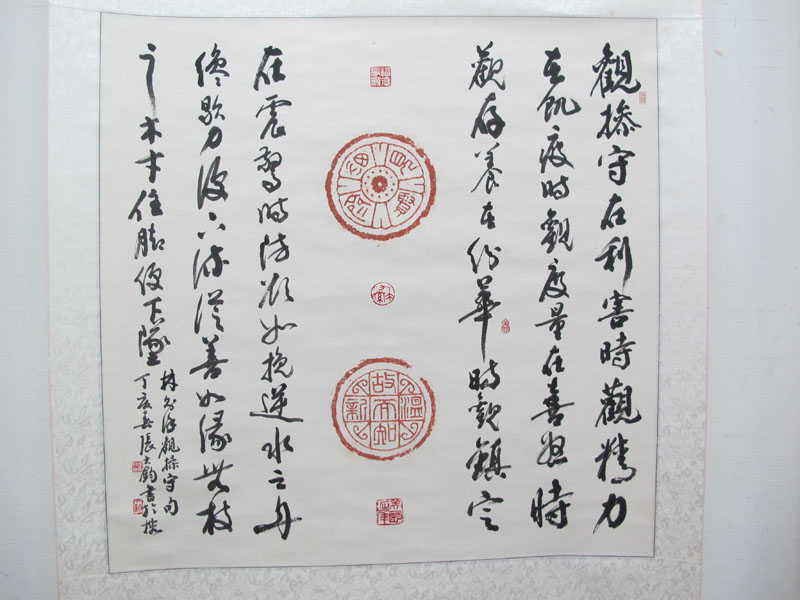 觀操守在利害時觀精力
在飢疲時觀度量在喜怒時
觀存養在紛華時觀鎮定
在震驚時防欲如挽逆水之舟
纔歇力便下流從善如緣無枝
之木才住脚便下墜
林則徐觀操守句
丁亥張鈞書於
溫故而知新